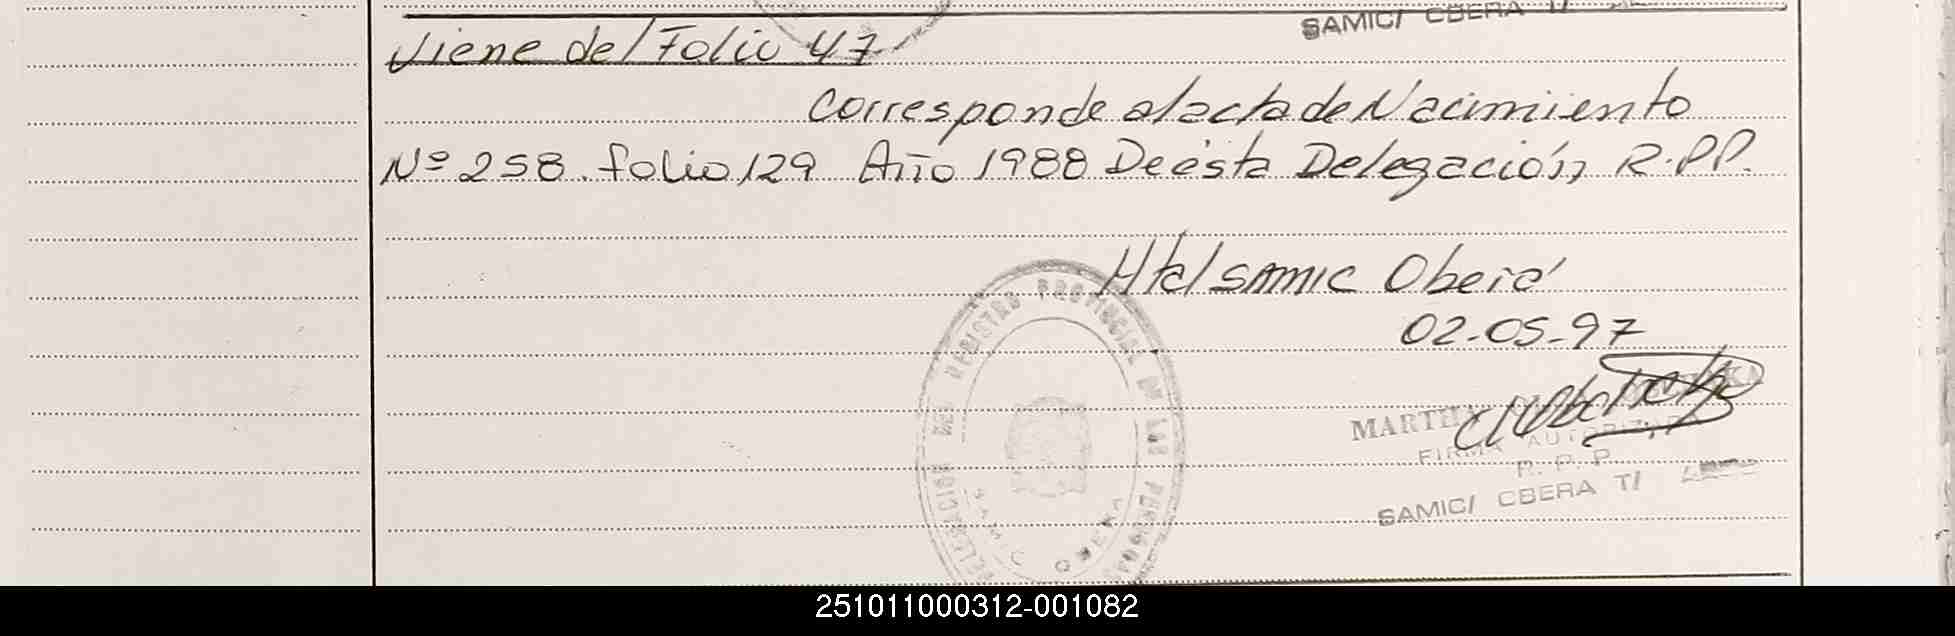 SAMIC/ OBERA T/
Viene del Folio 47
Corresponde al acta de Nacimiento
Nº 258. folio 129 Año 1988 De ésta Delegación R.P.P.
Htal SAMIC Oberá
02-05-97
DELEGACION DEL REGISTRO PROVINCIAL DE LAS PERSONAS
SAMIC OBERA
MARTHA
FIRMA AUTORIZADA
R. P. P.
SAMIC/ OBERA T/
251011000312-001082